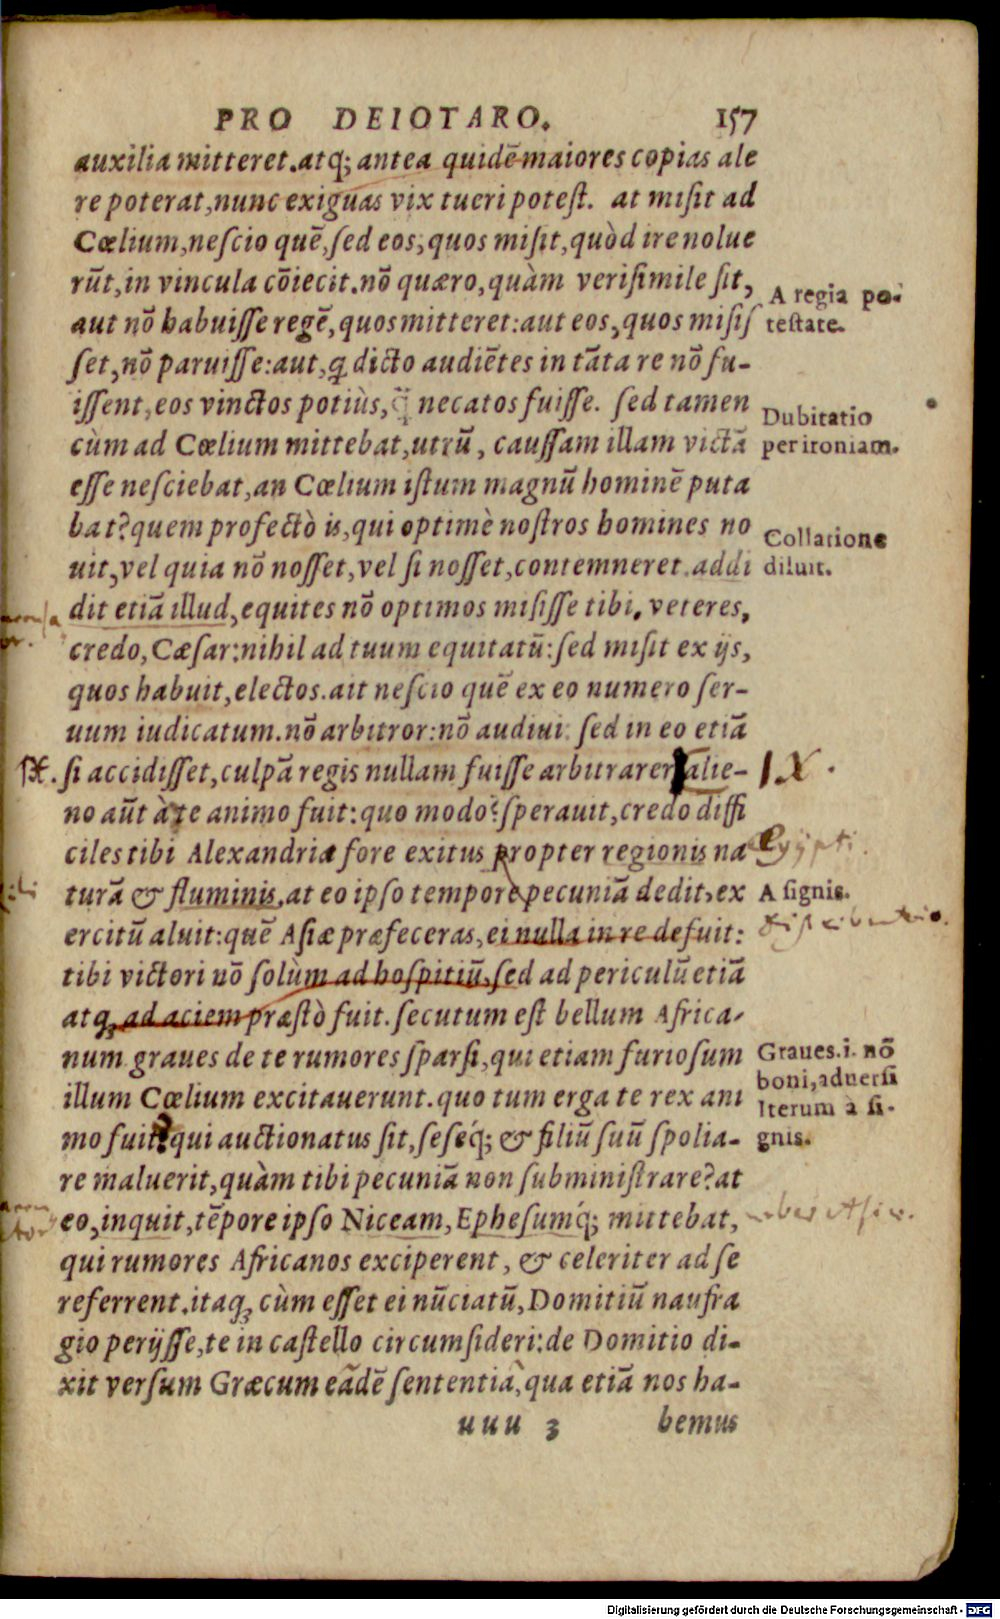 PRO DEIOTARO. 157
auxilia mitteret. atq; antea quidē maiores copias ale
re poterat, nunc exiguas vix tueri potest. at misit ad
Cœlium, nescio quē, sed eos, quos misit, quòd ire nolue
rūt, in vincula cōiecit. nō quæro, quàm verisimile sit,
A regia po-
aut nō habuisse regē, quos mitteret: aut eos, quos misis
testate.
set, nō paruisse: aut, q dicto audiētes in tāta re nō fu-
issent, eos vinctos potiùs, q̃ necatos fuisse. sed tamen
Dubitatio
cùm ad Cœlium mittebat, utrū, caussam illam victā
per ironiam.
esse nesciebat, an Cœlium istum magnū hominē puta
bat? quem profectò is, qui optimè nostros homines no
Collatione
uit, vel quia nō nosset, vel si nosset, contemneret. addi
diluit.
dit etiā illud, equites nō optimos misisse tibi. veteres,
credo, Cæsar: nihil ad tuum equitatū: sed misit ex ijs,
quos habuit, electos. ait nescio quē ex eo numero ser-
uum iudicatum. nō arbitror: nō audiui: sed in eo etiā
IX. si accidisset, culpā regis nullam fuisse arbitrarer. alie- IX.
no aūt à te animo fuit: quo modo? sperauit, credo diffi
ciles tibi Alexandriæ fore exitus propter regionis na
Egypti.
turā & fluminis. at eo ipso tempore pecuniā dedit, ex
A signis.
ercitū aluit: quē Asiæ præfeceras, ei nulla in re defuit:
tibi victori nō solùm ad hospitiū, sed ad periculū etiā
atq; ad aciem præstò fuit. secutum est bellum Africa-
num. graues de te rumores sparsi, qui etiam furiosum
Graues. i. nō
boni, aduersi
illum Cœlium excitauerunt. quo tum erga te rex ani
Iterum à si-
mo fuit? qui auctionatus sit, seseq́; & filiū suū spolia-
gnis.
re maluerit, quàm tibi pecuniā non subministrare? at
eo, inquit, tēpore ipso Niceam, Ephesumq́; mittebat,
qui rumores Africanos exciperent, & celeriter ad se
referrent. itaq; cùm esset ei nūciatū, Domitiū naufra
gio perijsse, te in castello circumsideri: de Domitio di-
xit versum Græcum eādē sententiâ, qua etiā nos ha-
uuu 3 bemus
Digitalisierung gefördert durch die Deutsche Forschungsgemeinschaft - DFG